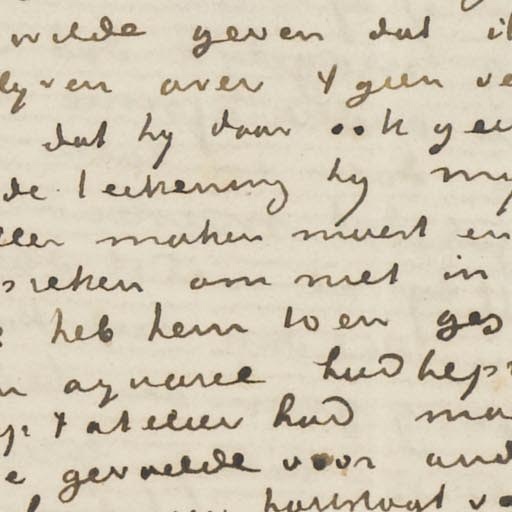 wilde geven dat ik
lyven over 't geen ve
dat hy daar ook gee
de teekening hy my
ller maken moest en
spreken om niet in
heb hem toen ges
n aquarel had heps
op 't atelier had ma
e gevoelde voor and
houtskool v